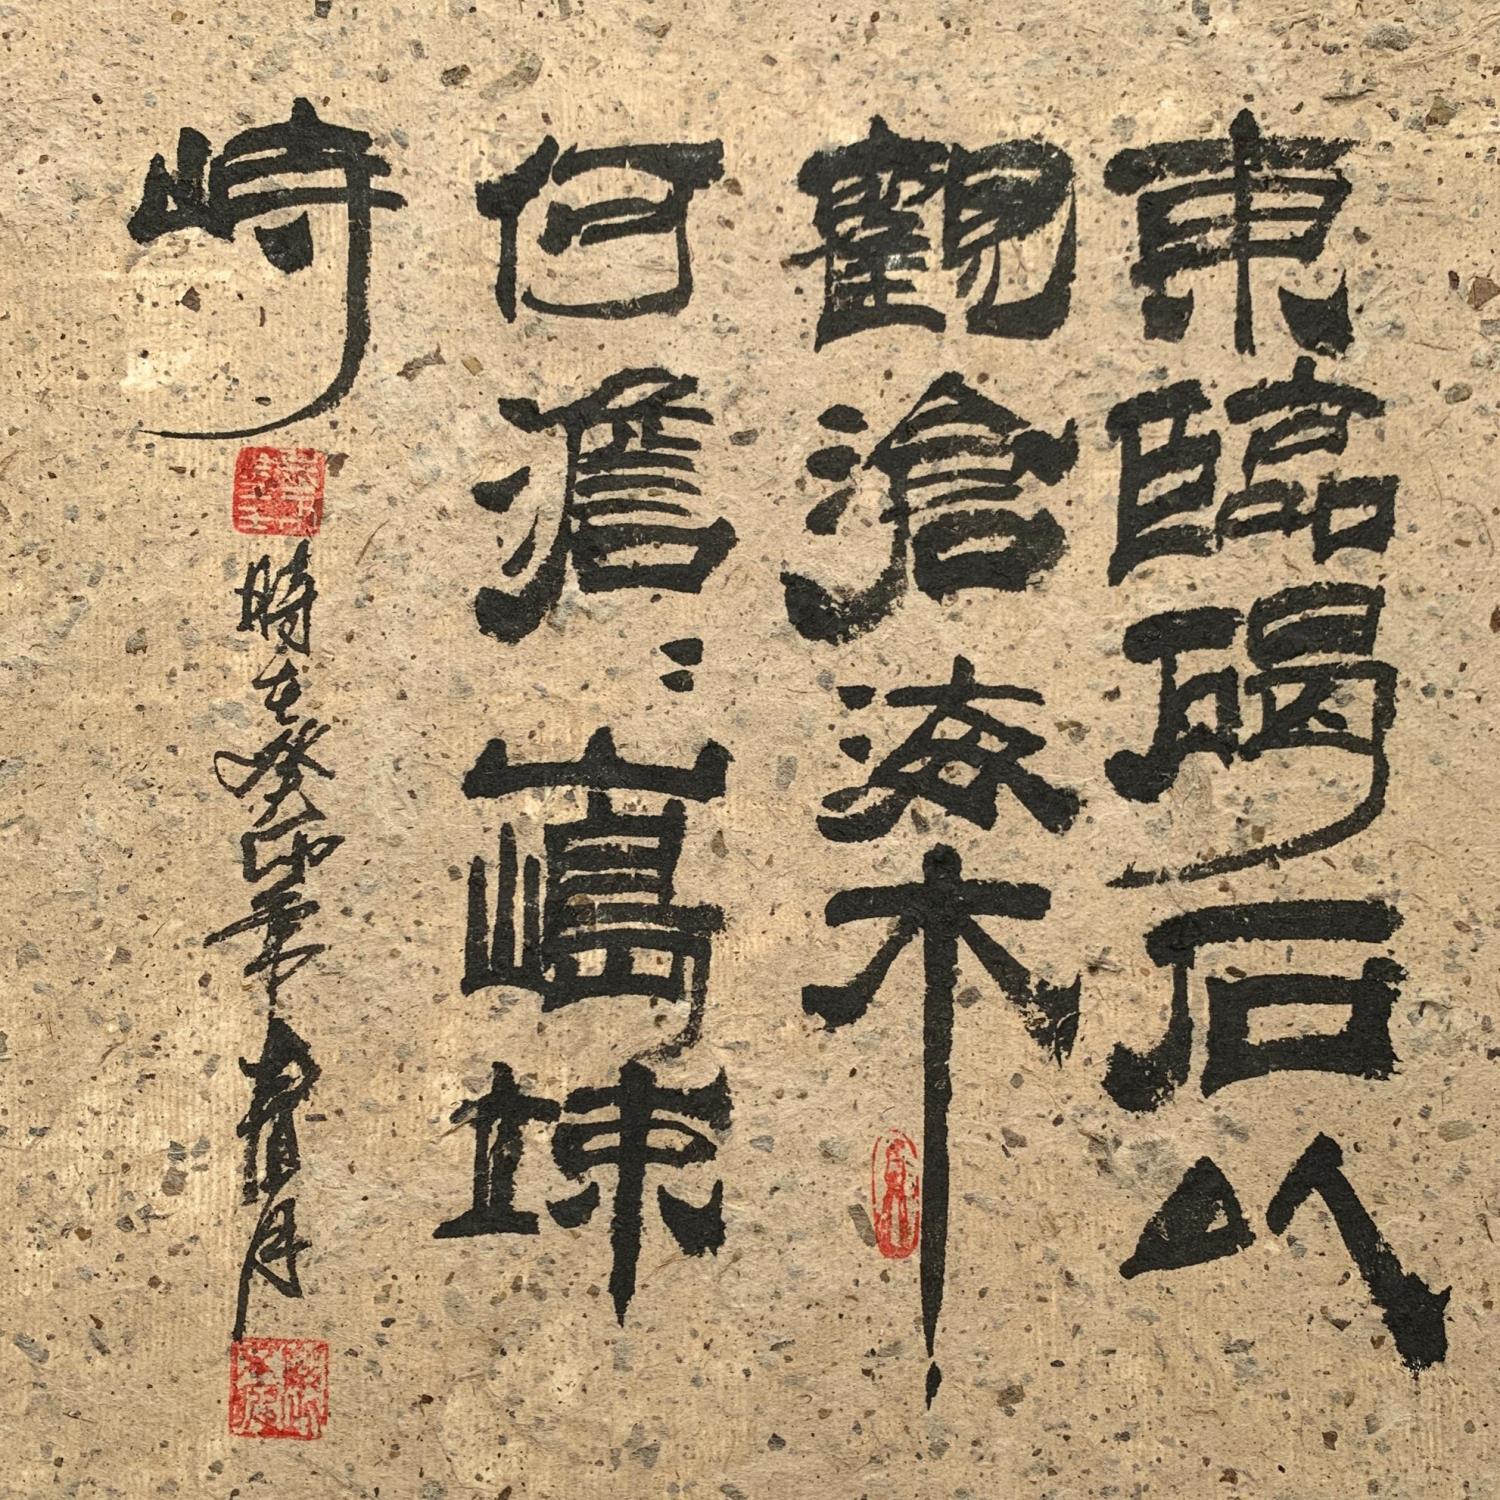 東臨碣石以
觀滄海木
何澹〻山島竦
峙
時在癸卯年